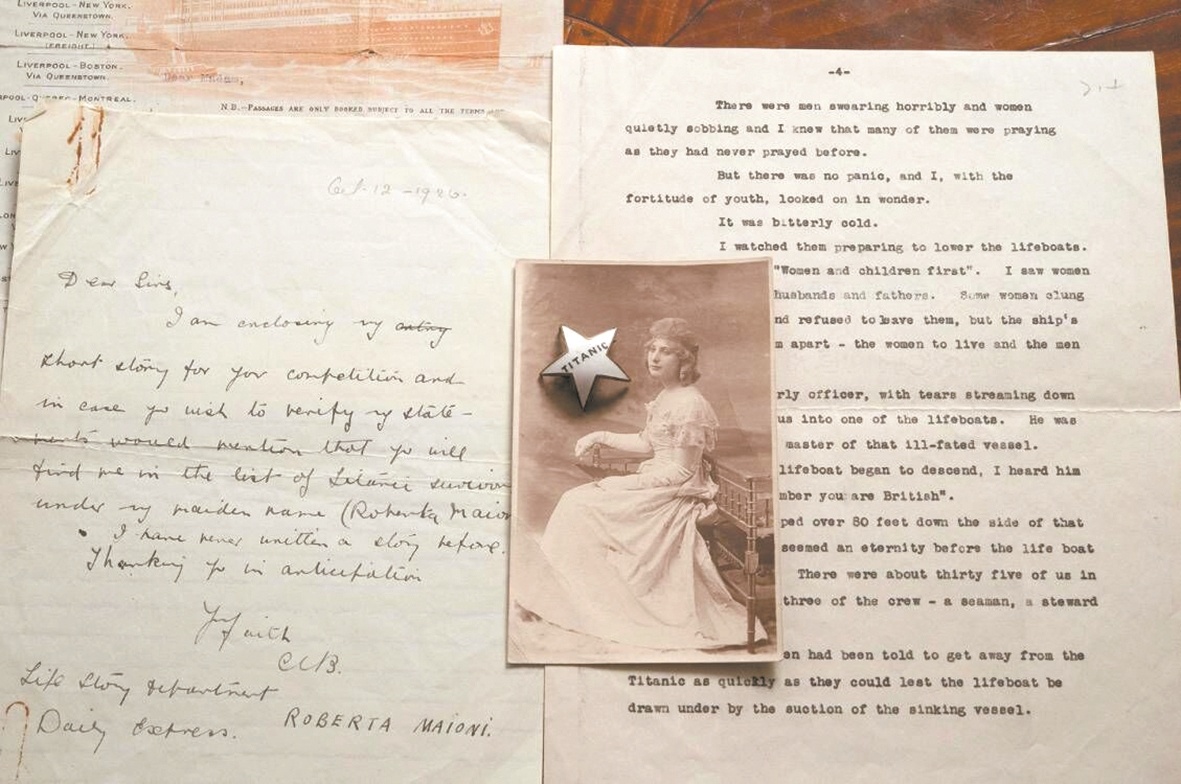 LIVERPOOL-NEW YORK,
VIA QUEENSTOWN.
LIVERPOOL-NEW YORK.
(FREIGHT).
LIVERPOOL-BOSTON.
VIA QUEENSTOWN.
POOL-QUEBEC-MONTREAL.
Dear Madam,
N.B.-PASSAGES ARE ONLY BOOKED SUBJECT TO ALL THE TERMS
Oct. 12-1926.
Dear Sirs,
I am enclosing my
short story for your competition and
in case yo wish to verify my state-
ments would mention that yo will
find me in the list of Titanic survivor
under my maiden name (Roberta Maion
I have never written a story before.
Thanking yo in anticipation
CUB.
Life Story Department
Daily Express.
ROBERTA MAIONI.
TITANIC
-4-
There were men swearing horribly and women
quietly sobbing and I knew that many of them were praying
as they had never prayed before.
But there was no panic, and I, with the
fortitude of youth, looked on in wonder.
It was bitterly cold.
I watched them preparing to lower the lifeboats.
"Women and children first". I saw women
husbands and fathers. Some women clung
nd refused to leave them, but the ship's
m apart - the women to live and the men
rly officer, with tears streaming down
us into one of the lifeboats. He was
master of that ill-fated vessel.
lifeboat began to descend, I heard him
mber you are British".
ped over 80 feet down the side of that
seemed an eternity before the life boat
There were about thirty five of us in
three of the crew - a seaman, a steward
en had been told to get away from the
Titanic as quickly as they could lest the lifeboat be
drawn under by the suction of the sinking vessel.